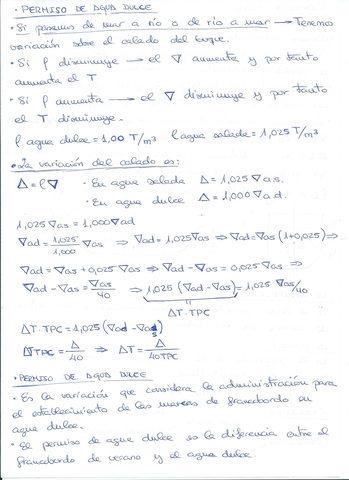 • PERMISO DE AGUA DULCE
• Si pasamos de mar a río o de río a mar → Tenemos
variación sobre el calado del buque.
• Si ρ disminuye → el ∇ aumenta y por tanto
aumenta el T
• Si ρ aumenta → el ∇ disminuye y por tanto
el T disminuye.
ρ agua dulce = 1,00 T/m³ ρ agua salada = 1,025 T/m³
• La variación del calado es:
Δ = ρ∇ • En agua salada Δ = 1,025 ∇a.s.
• En agua dulce Δ = 1,000 ∇a.d.
1,025 ∇as = 1,000 ∇ad
∇ad = 1,025/1,000 ∇as ⇒ ∇ad = 1,025∇as ⇒ ∇ad = ∇as (1+0,025) ⇒
∇ad = ∇as + 0,025 ∇as ⇒ ∇ad - ∇as = 0,025 ∇as ⇒
∇ad - ∇as = ∇as/40 ⇒ 1,025 (∇ad - ∇as) = 1,025 ∇as/40
ΔT·TPC
ΔT·TPC = 1,025 (∇ad - ∇as)
ΔT TPC = Δ/40 ⇒ ΔT = Δ/40TPC
• PERMISO DE AGUA DULCE
• Es la variación que considera la administración para
el establecimiento de las marcas de francobordo en
agua dulce.
• El permiso de agua dulce es la diferencia entre el
francobordo de verano y el agua dulce.